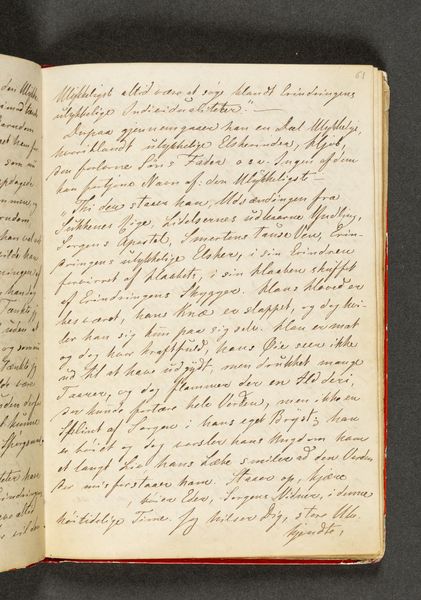 61
Ulykkeligst altid være at søge blandt Erindringens
ulykkelige Individualiteter." —
Derpaa gjennemgaaer han en Deel Ulykkelige,
hvoriblandt ulykkelige Elskerinder, Hjob,
den forlorne Søns Fader o s v. Ingen af dem
kan fortjene Navn af: den Ulykkeligste —
"Thi der staaer han, Udsendingen fra
Sukkenes Rige, Lidelsernes udkaarne Yndling,
Sorgens Apostel, Smertens tause Ven, Erin-
dringens ulykkelige Elsker, i sin Erindren
forvirret af Haabets, i sin Haaben skuffet
af Erindringens Skygger. Hans Hoved er
besværet, hans Knæ er slappet, og dog hvi-
ler han sig kun paa sig selv. Han er mat
og dog hvor kraftfuld, hans Øie seer ikke
ud til at have udgydt, men drukket mange
Taarer, og dog flammer der en Ild deri,
der kunde fortære hele Verden, men ikke en
Splint af Sorgen i hans eget Bryst; han
er bøiet og dog varsler hans Ungdom ham
et langt Liv, hans Læbe smiler ad den Verden
der misforstaaer ham. Staaer op, kjære
, bøier Eder, Sorgens Vidner, i denne
høitidelige Time. Jeg hilser Dig, store Ube-
kjendte,